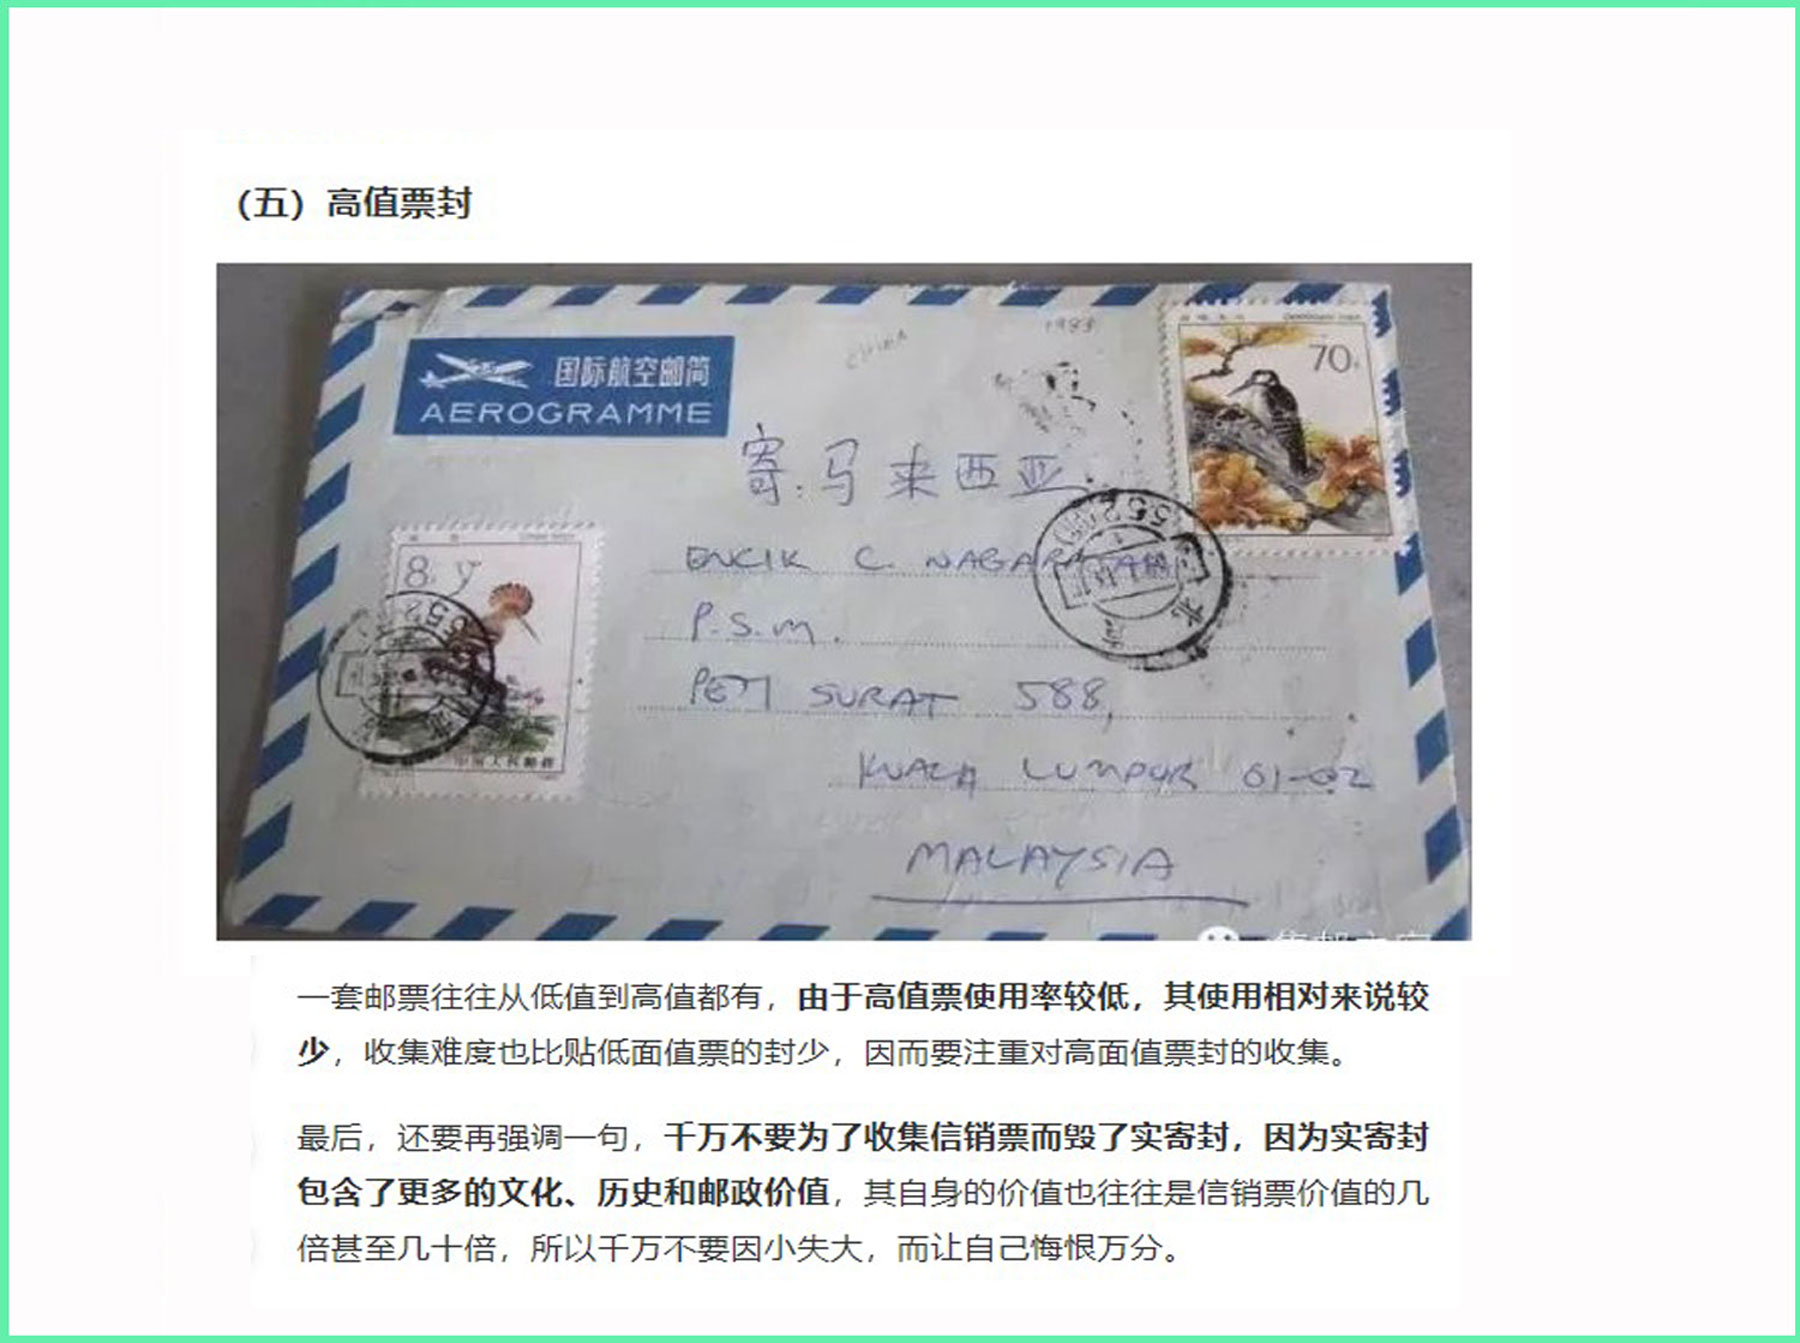 （五）高值票封
1983
CHINA
国际航空邮简
AEROGRAMME
70
寄:马来西亚.
552
8
552
ENCIK C. NAGARAJAN
P.S.M.
PETI SURAT 588,
KUALA LUMPUR 01-02
中国人民邮政
MALAYSIA
一套邮票往往从低值到高值都有，由于高值票使用率较低，其使用相对来说较
少，收集难度也比贴低面值票的封少，因而要注重对高面值票封的收集。
最后，还要再强调一句，千万不要为了收集信销票而毁了实寄封，因为实寄封
包含了更多的文化、历史和邮政价值，其自身的价值也往往是信销票价值的几
倍甚至几十倍，所以千万不要因小失大，而让自己悔恨万分。